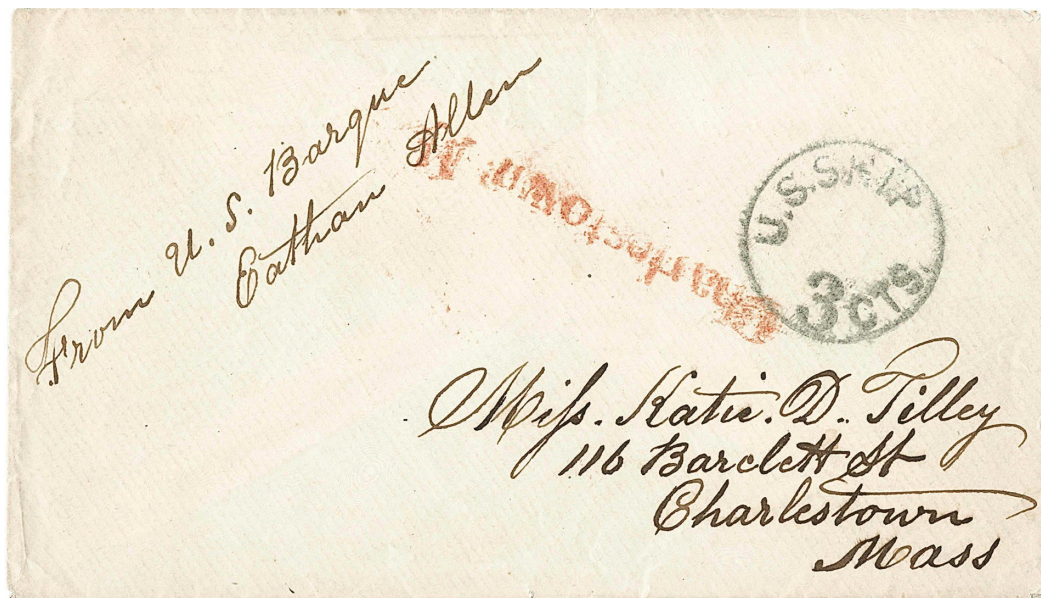 From U. S. Barque
Eathan Allen
Charlestown. M
U.S. SHIP
3 CTS.
Miſs. Katie. D. Tilley
116 Barclett St
Charlestown
Mass